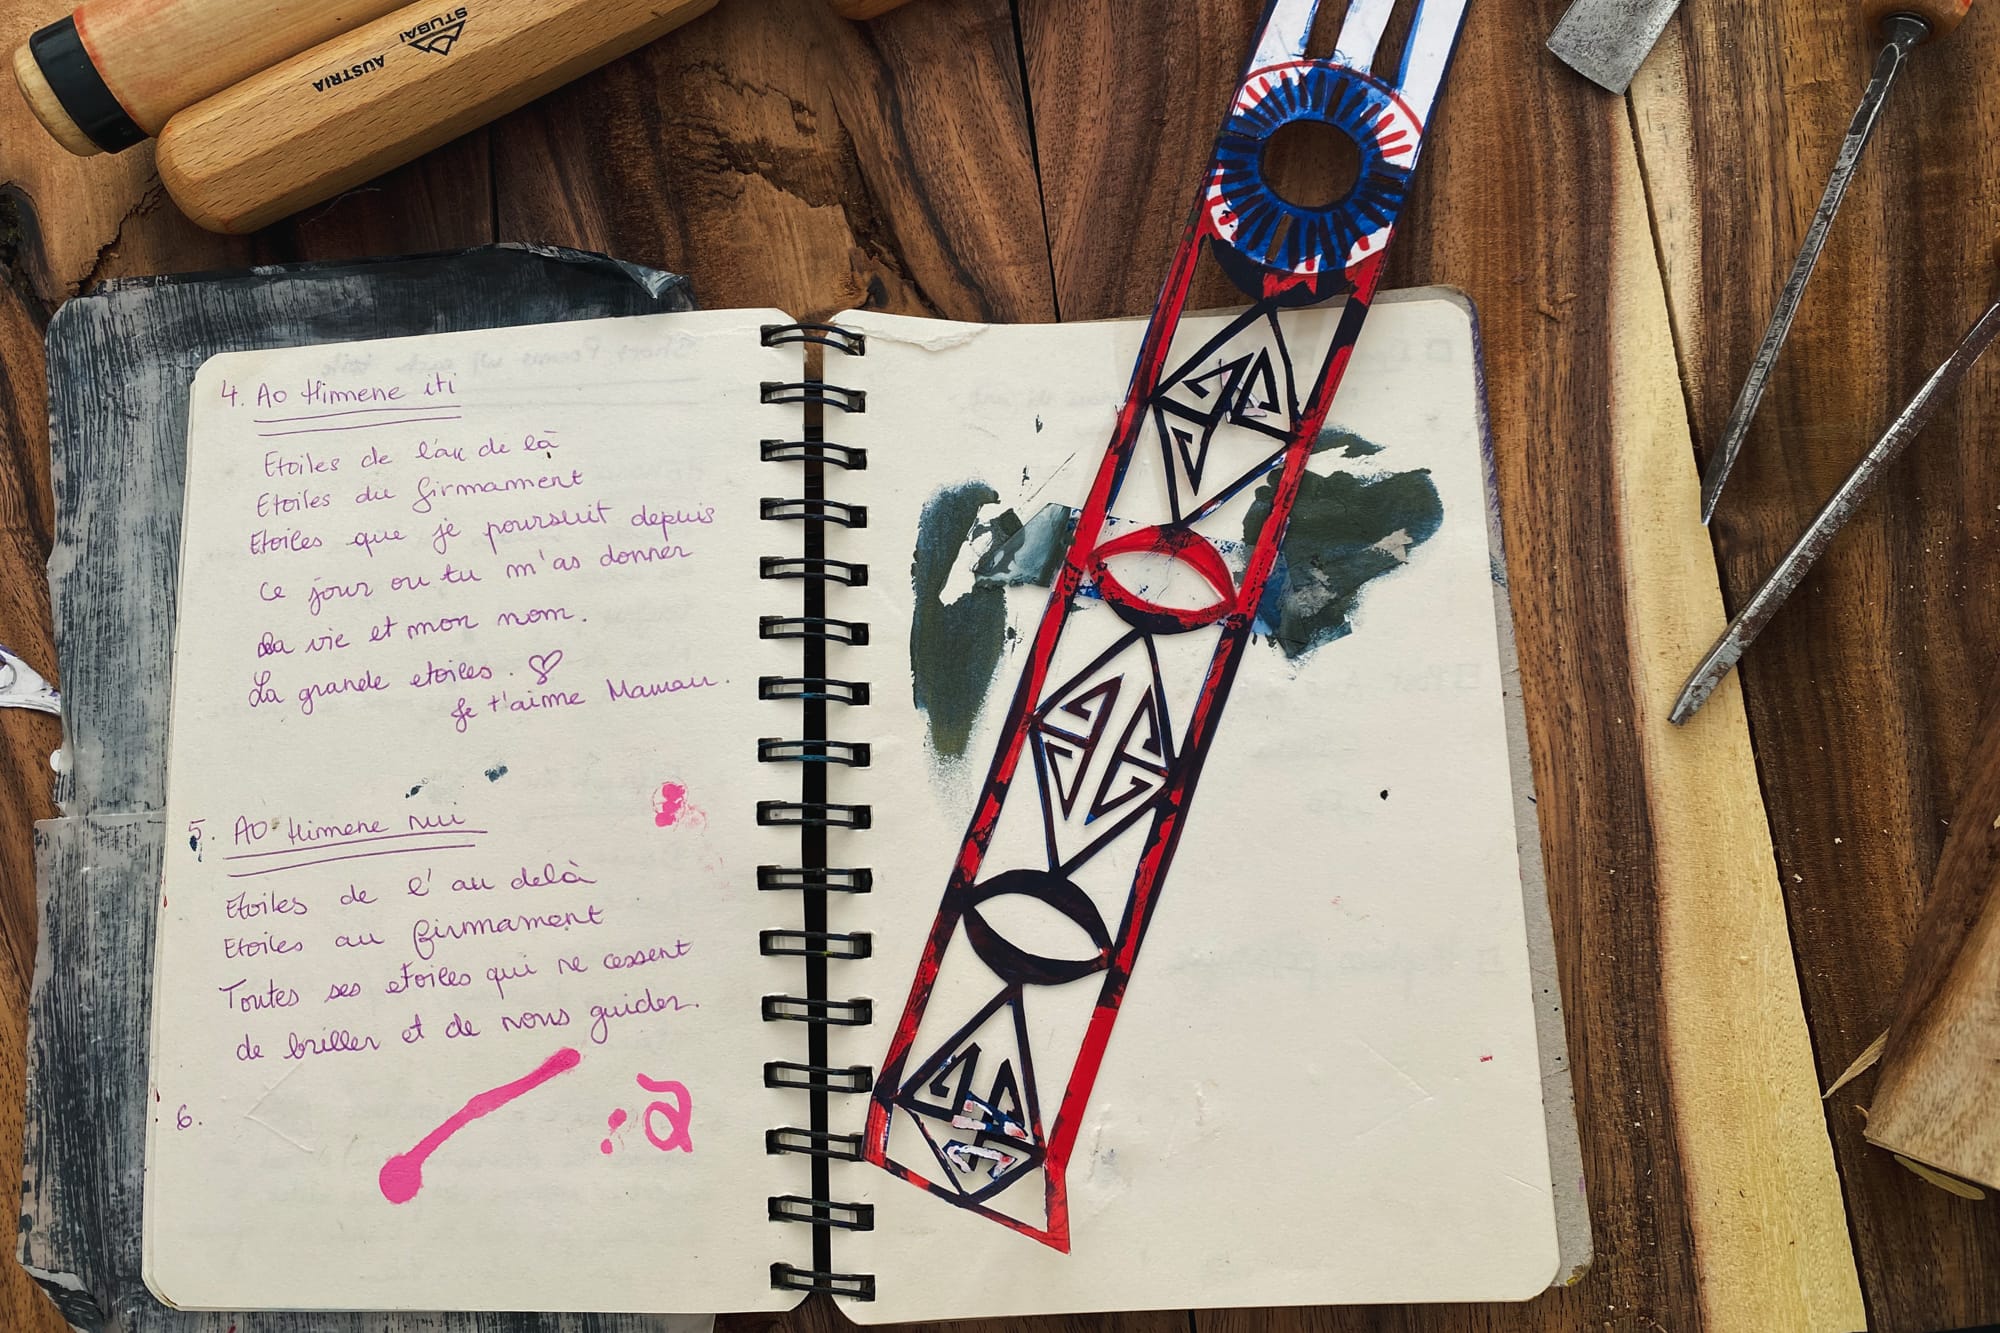 STUBAI
AUSTRIA
4. Ao Himene iti
Etoiles de l'au de là
Etoiles du firmament
Etoiles que je poursuit depuis
ce jour ou tu m'as donner
La vie et mon nom.
La grande etoiles. ♡
Je t'aime Maman.
5. Ao Himene nui
Etoiles de l'au delà
Etoiles au firmament
Toutes ses etoiles qui ne cessent
de briller et de nous guider.
6.